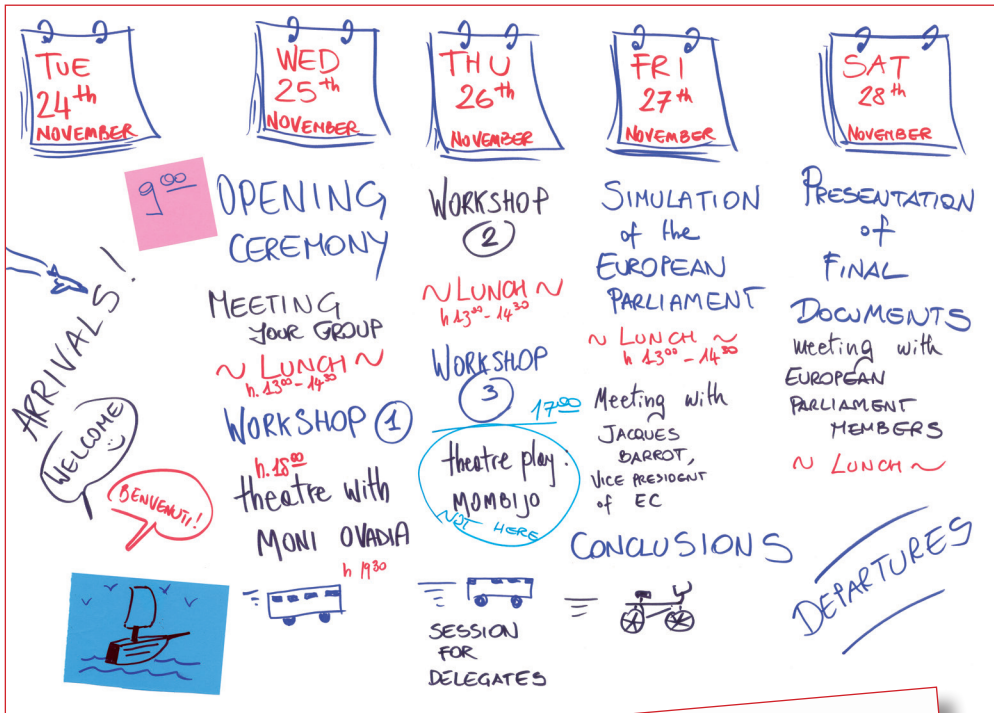 TUE
24th
NOVEMBER
ARRIVALS!
WELCOME
BENVENUTI!
WED
25th
NOVEMBER
9 00
OPENING
CEREMONY
MEETING
YOUR GROUP
~ LUNCH ~
h. 13 00 - 14 30
WORKSHOP 1
h. 18 00
theatre with
MONI OVADIA
h 19 30
THU
26th
NOVEMBER
WORKSHOP
2
~ LUNCH ~
h 13 00 - 14 30
WORKSHOP
3
17 00
theatre play.
MOMBIJO
~ NOT HERE
SESSION
FOR
DELEGATES
FRI
27th
NOVEMBER
SIMULATION
of the
EUROPEAN
PARLIAMENT
~ LUNCH ~
h 13 00 - 14 30
Meeting with
JACQUES
BARROT,
VICE PRESIDENT
of EC
CONCLUSIONS
SAT
28th
NOVEMBER
PRESENTATION
of
FINAL
DOCUMENTS
Meeting with
EUROPEAN
PARLIAMENT
MEMBERS
~ LUNCH ~
DEPARTURES